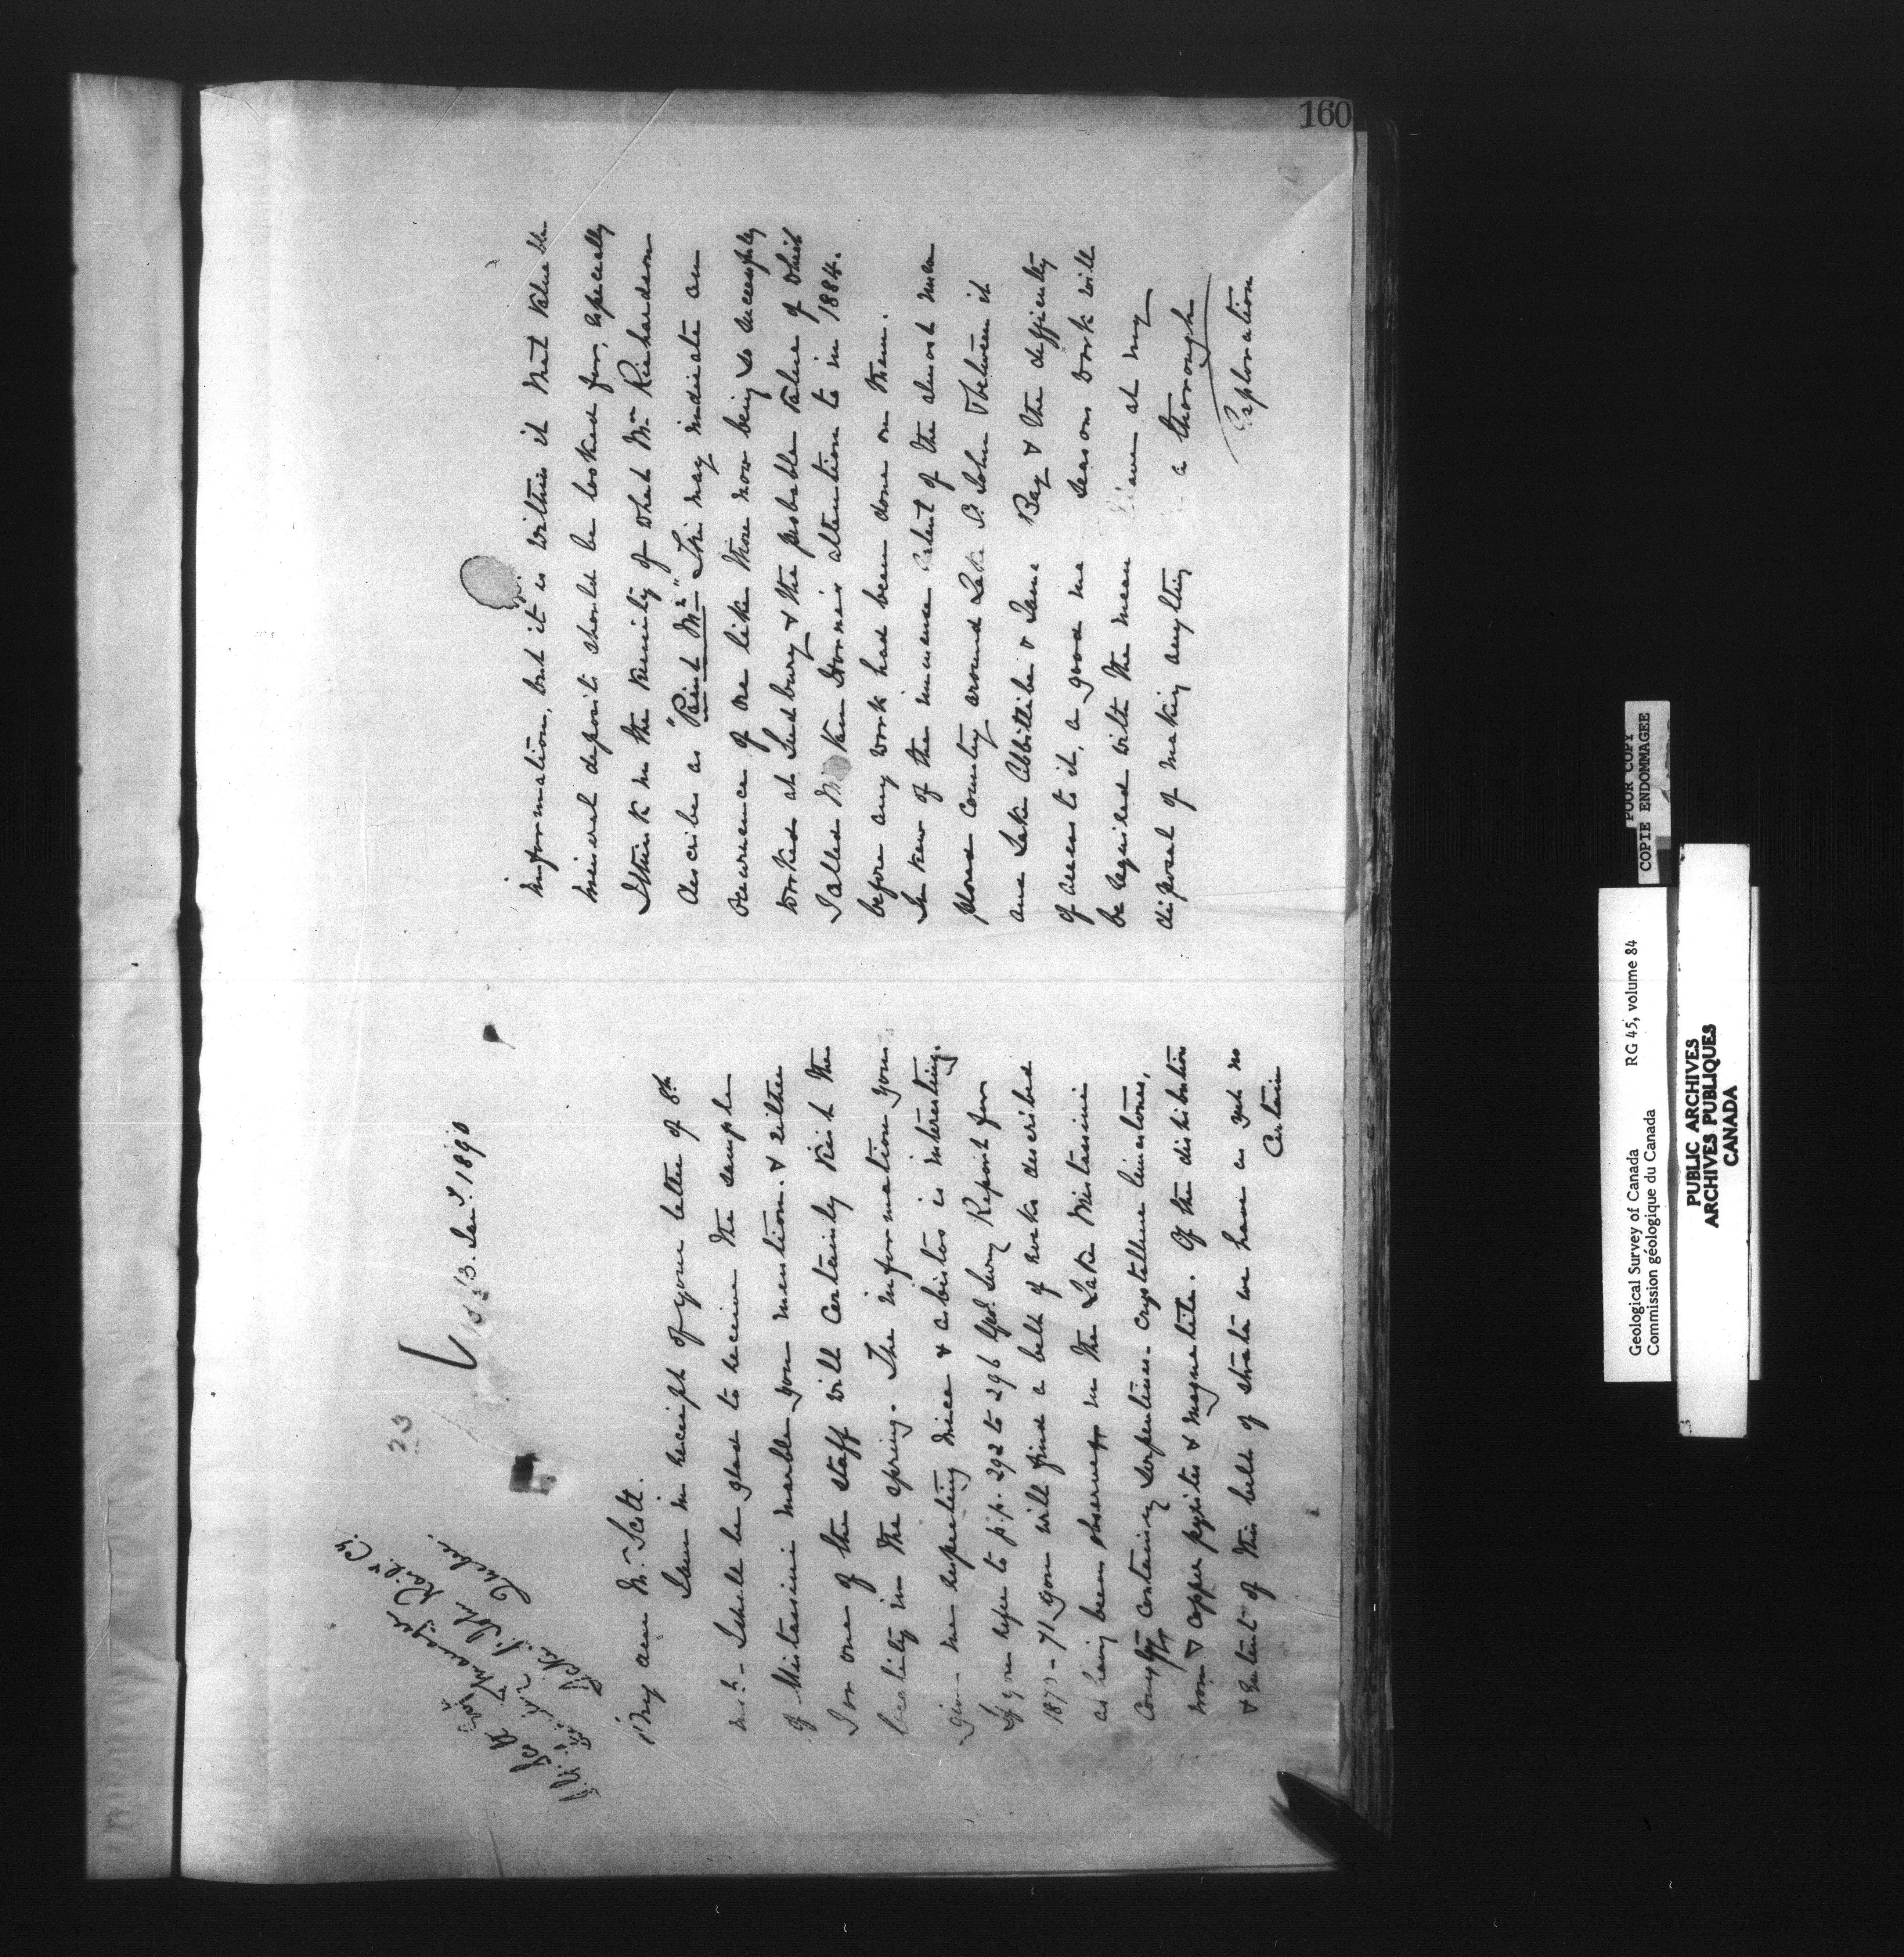 160
23
13. Jany. 1890
J. G. Scott Esq
Manager
Lake St. John Railwy Cy.
Quebec.
My dear Mr. Scott.
I am in receipt of your letter of 8th
inst. I shall be glad to receive the sample
of Mistassini marble you mention. & either
I or one of the staff will certainly visit the
locality in the spring. The information you
give me respecting mica & asbistos is interesting.
If you refer to p.p. 292 to 296 Geol. Survy Report for
1870-71 you will find a belt of rocks described
as having been observed in the Lake Mistassini
Country containing serpentines - crystalline limestones,
iron & copper pyrites & magnetite. Of the distribution
& extent of this belt of strata we have as yet no
Certain
information, but it is within it that valuable
mineral deposits should be looked for, especially
I think in the vicinity of what Mr. Richardson
describes as "Paint Mn." This may indicate an
occurrence of ore like those now being so successfully
worked at Sudbury & the probable value of which
I called Mr Van Horne's attention to in 1884.
before any work had been done on them.
In view of the immense extent of the almost unex
plored country around Lake St. John & between it
and Lake Abbittibi & James Bay & the difficulty
of access to it, a good many seasons work will
be required with the means I have at my
disposal of making anything like a thorough
Exploration
POOR COPY
COPIE ENDOMMAGEE
Geological Survey of Canada RG 45, volume 84
Commission géologique du Canada
PUBLIC ARCHIVES
ARCHIVES PUBLIQUES
CANADA
3